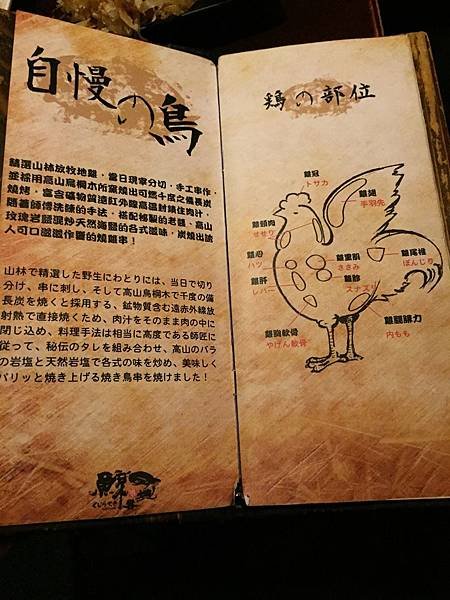 自慢の鳥
精選山林放牧地雞，當日現宰分切，手工串作，
並採用高山烏桐木所窯燒出可燃千度之備長炭
燒烤，富含礦物質遠紅外線高溫封鎖住肉汁，
隨著師傅老練的手法，搭配秘製的老醬、高山
玫瑰岩鹽混炒天然海鹽的各式滋味，炭燒出誘
人可口滋滋作響的燒雞串！
山林で精選した野生にわとりには、当日で切り
分け、串に刺し、そして高山烏桐木で千度の備
長炭を焼くと採用する、鉱物質含む遠赤外線放
射熱で直接焼くため、肉汁をそのまま肉の中に
閉じ込め、料理手法は相当に高度である師匠に
従って、秘伝のタレを組み合わせ、高山のバラ
の岩塩と天然岩塩で各式の味を炒め、美味しく
パリッと焼き上げる焼き鳥串を焼けました！
鶏の部位
雞冠
トサカ
雞翅
手羽先
雞頸肉
せせり
雞心
ハツ
雞里肌
ささみ
雞尾椎
ぼんじり
雞肝
レバー
雞胗
スナズリ
雞腿綿力
内もも
雞胸軟骨
やげん軟骨